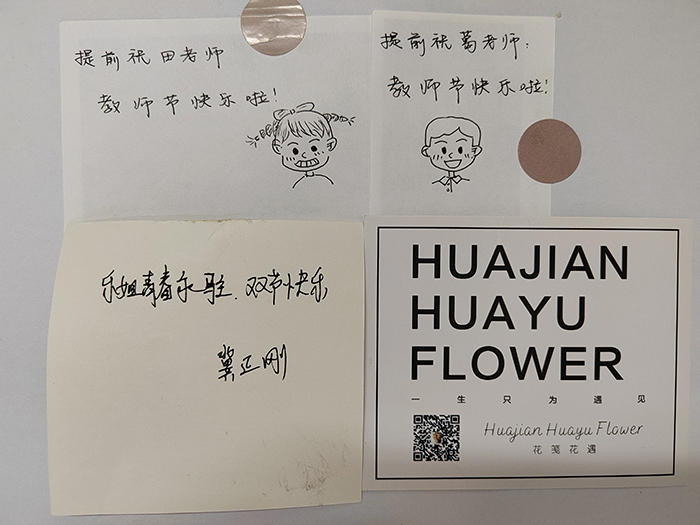 提前祝田老师
教师节快乐啦!
提前祝葛老师:
教师节快乐啦!
乐姐青春永驻.双节快乐
冀正刚
HUAJIAN
HUAYU
FLOWER
一生只为遇见
Huajian Huayu Flower
花笺花遇